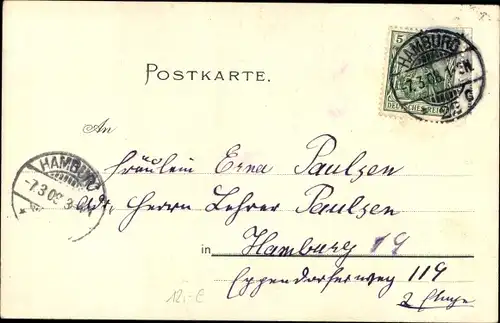 5
DEUTSCHES REICH
HAMBURG
7.3.09. 1-2N.
HAMBURG
-7.3.09 3-
POSTKARTE.
An
Fräulein Erna Paulsen
Adr. Herrn Lehrer Paulsen
in Hamburg 19
Eppendorferweg 119
2 Etage
12,-€